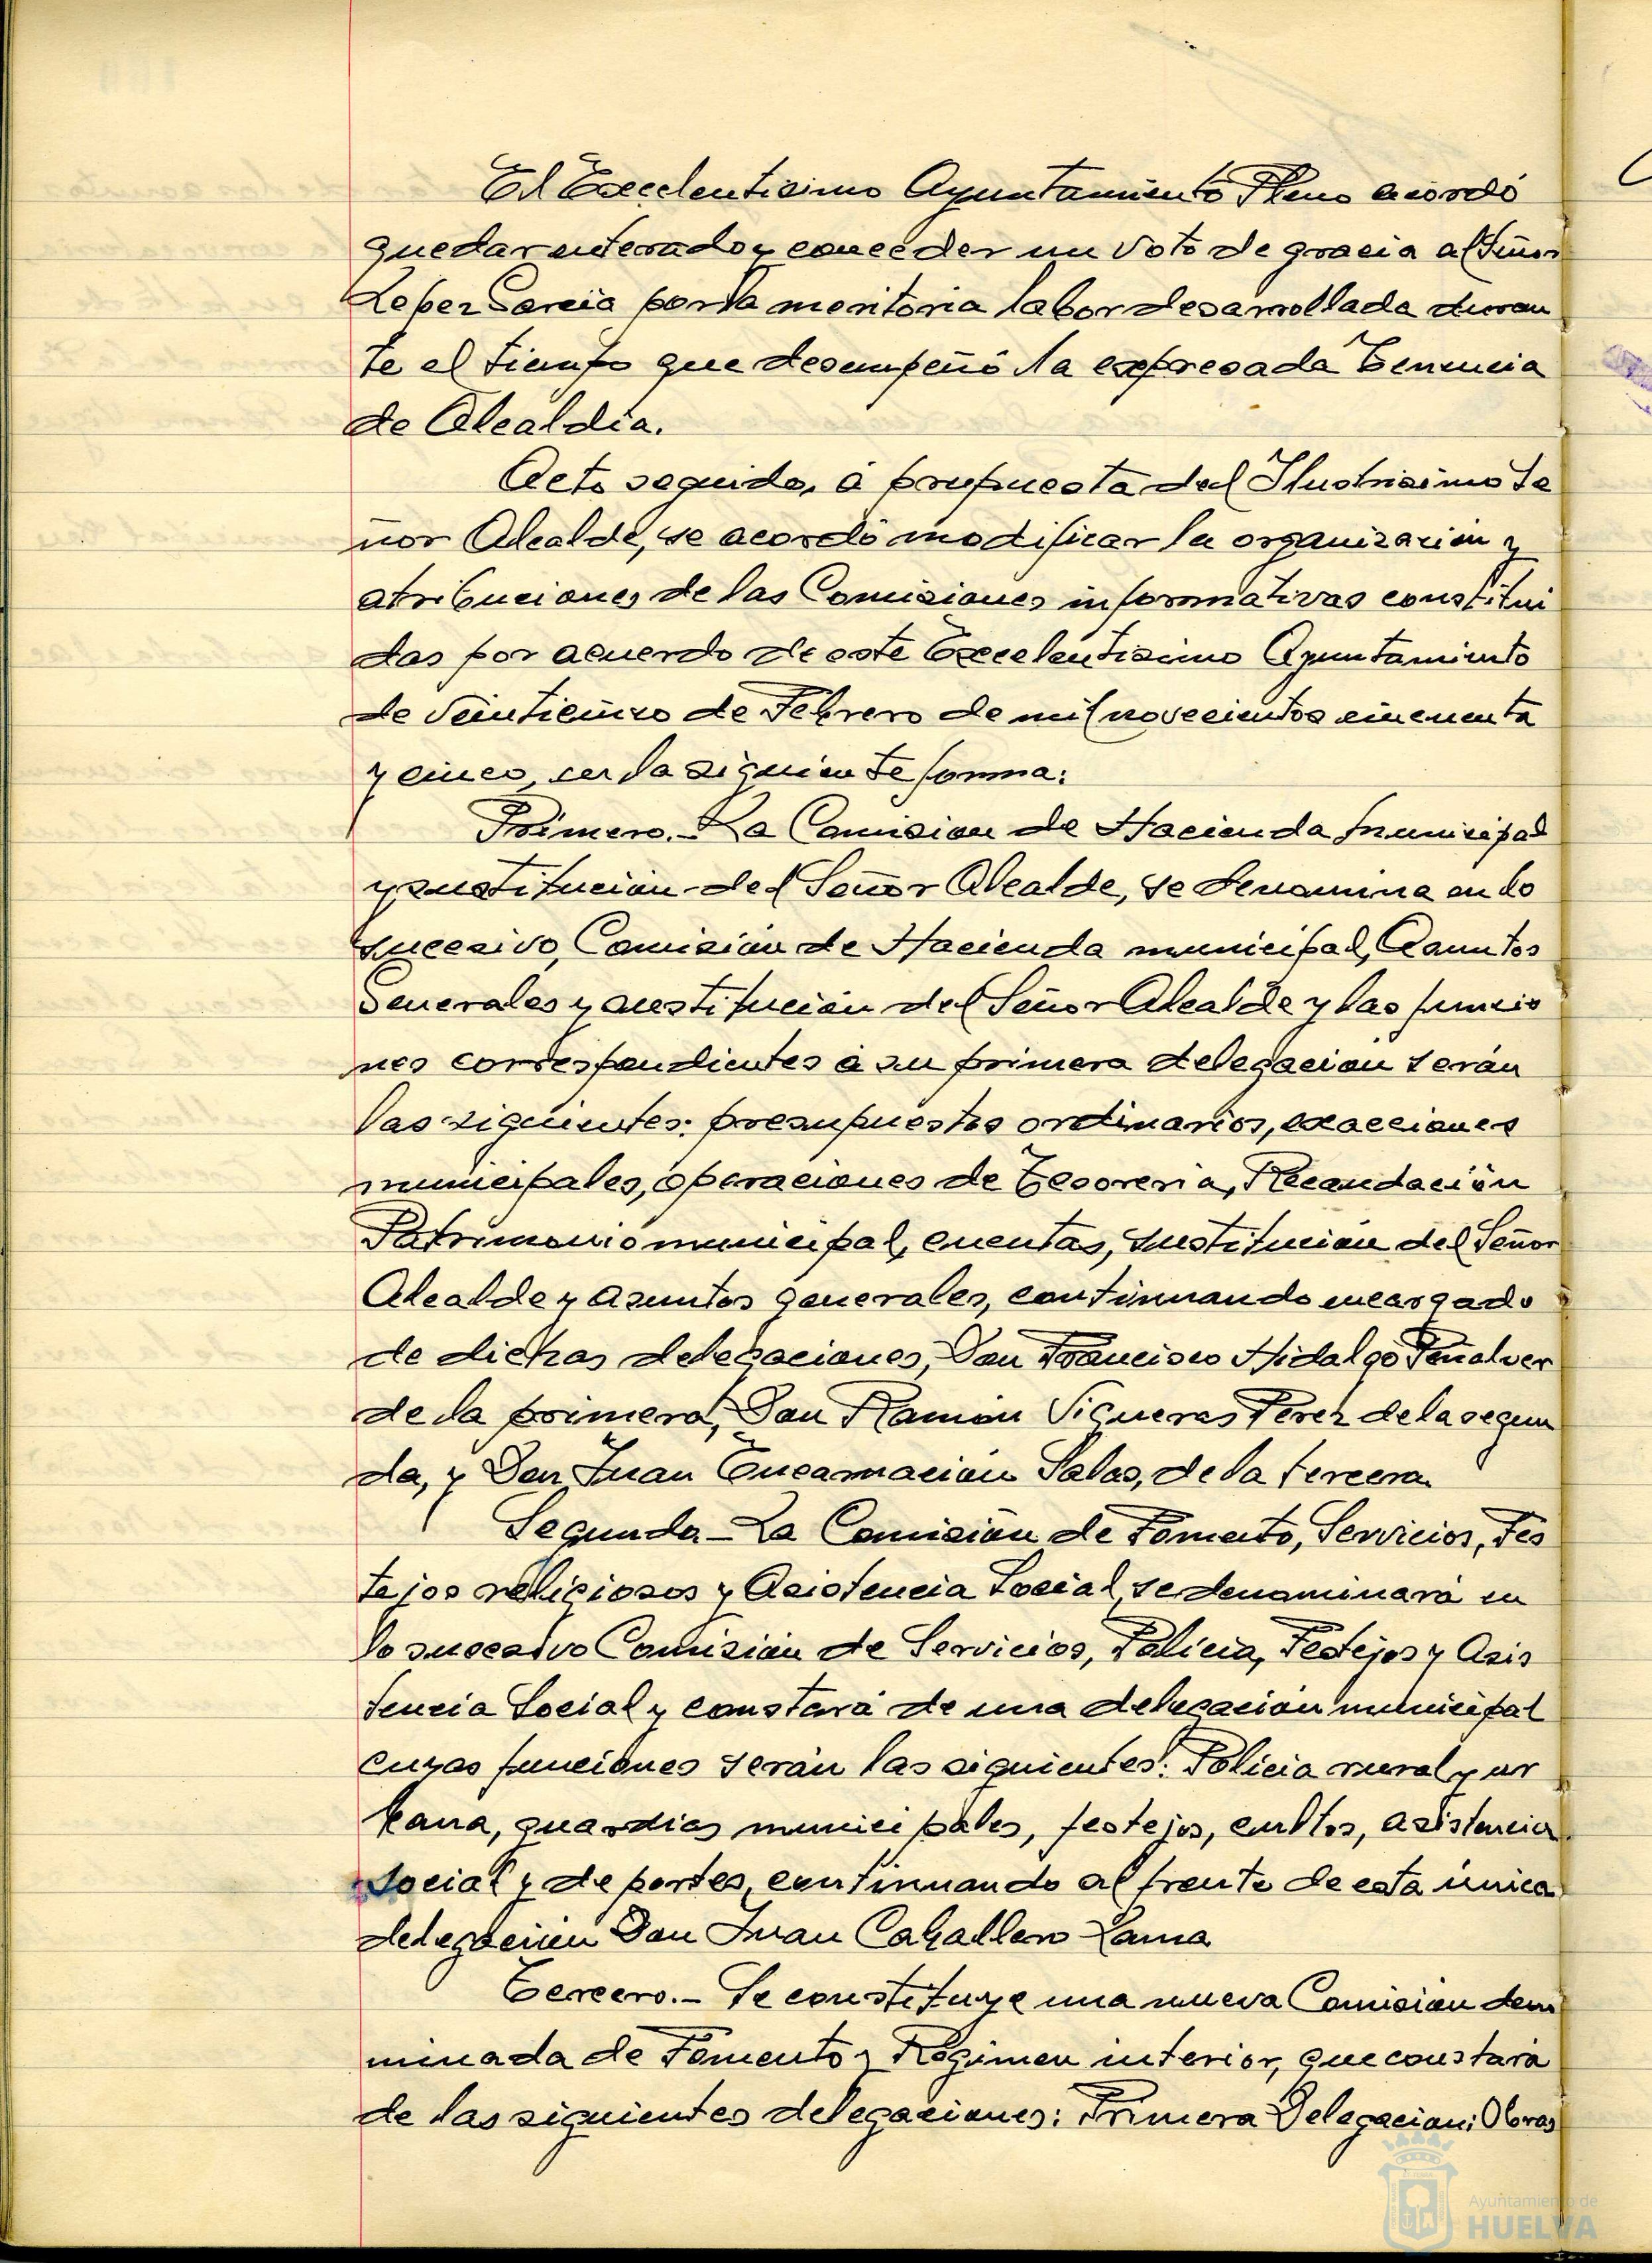 El Excelentisimo Ayuntamiento Pleno acordó
quedar enterado y conceder un voto de gracia al Señor
Lopez Garcia por la meritoria labor desarrollada duran
te el tiempo que desempeñó la expresada Tenencia
de Alcaldia.
Acto seguido, á propuesta del Ilustrisimo Se
ñor Alcalde, se acordó modificar la organizacion y
atribuciones de las Comisiones informativas constitui
das por acuerdo de este Excelentisimo Ayuntamiento
de veinticinco de Febrero de mil novecientos cincuenta
y cinco, en la siguiente forma:
Primero.- La Comision de Hacienda municipal
y sustitucion del Señor Alcalde, se denomina en lo
sucesivo, Comisión de Hacienda municipal, Asuntos
Generales y sustitución del Señor Alcalde y las funcio
nes correspondientes á su primera delegacion serán
las siguientes: presupuestos ordinarios, exacciones
municipales, operaciones de Tesoreria, Recaudación
Patrimonio municipal, cuentas, sustitucion del Señor
Alcalde y asuntos generales, continuando encargado
de dichas delegaciones, Don Francisco Hidalgo Peñalver
de la primera, Don Ramon Vigueras Perez de la segun
da, y Don Juan Encarnacion Salas, de la tercera.
Segundo - La Comisión de Fomento, Servicios, Fes
tejos religiosos y Asistencia Social, se denominará en
lo sucesivo Comisión de Servicios, Policia, Festejos y Asis
tencia Social y constará de una delegación municipal
cuyas funciones serán las siguientes: Policia rural y ur
bana, guardias municipales, festejos, cultos, asistencia
social y deportes, continuando al frente de esta única
delegación Don Juan Caballero Lama
Tercero.- Se constituye una nueva Comision deno
minada de Fomento y Régimen interior, que constará
de las siguientes delegaciones: Primera Delegacion: Obras
Ayuntamiento de
HUELVA